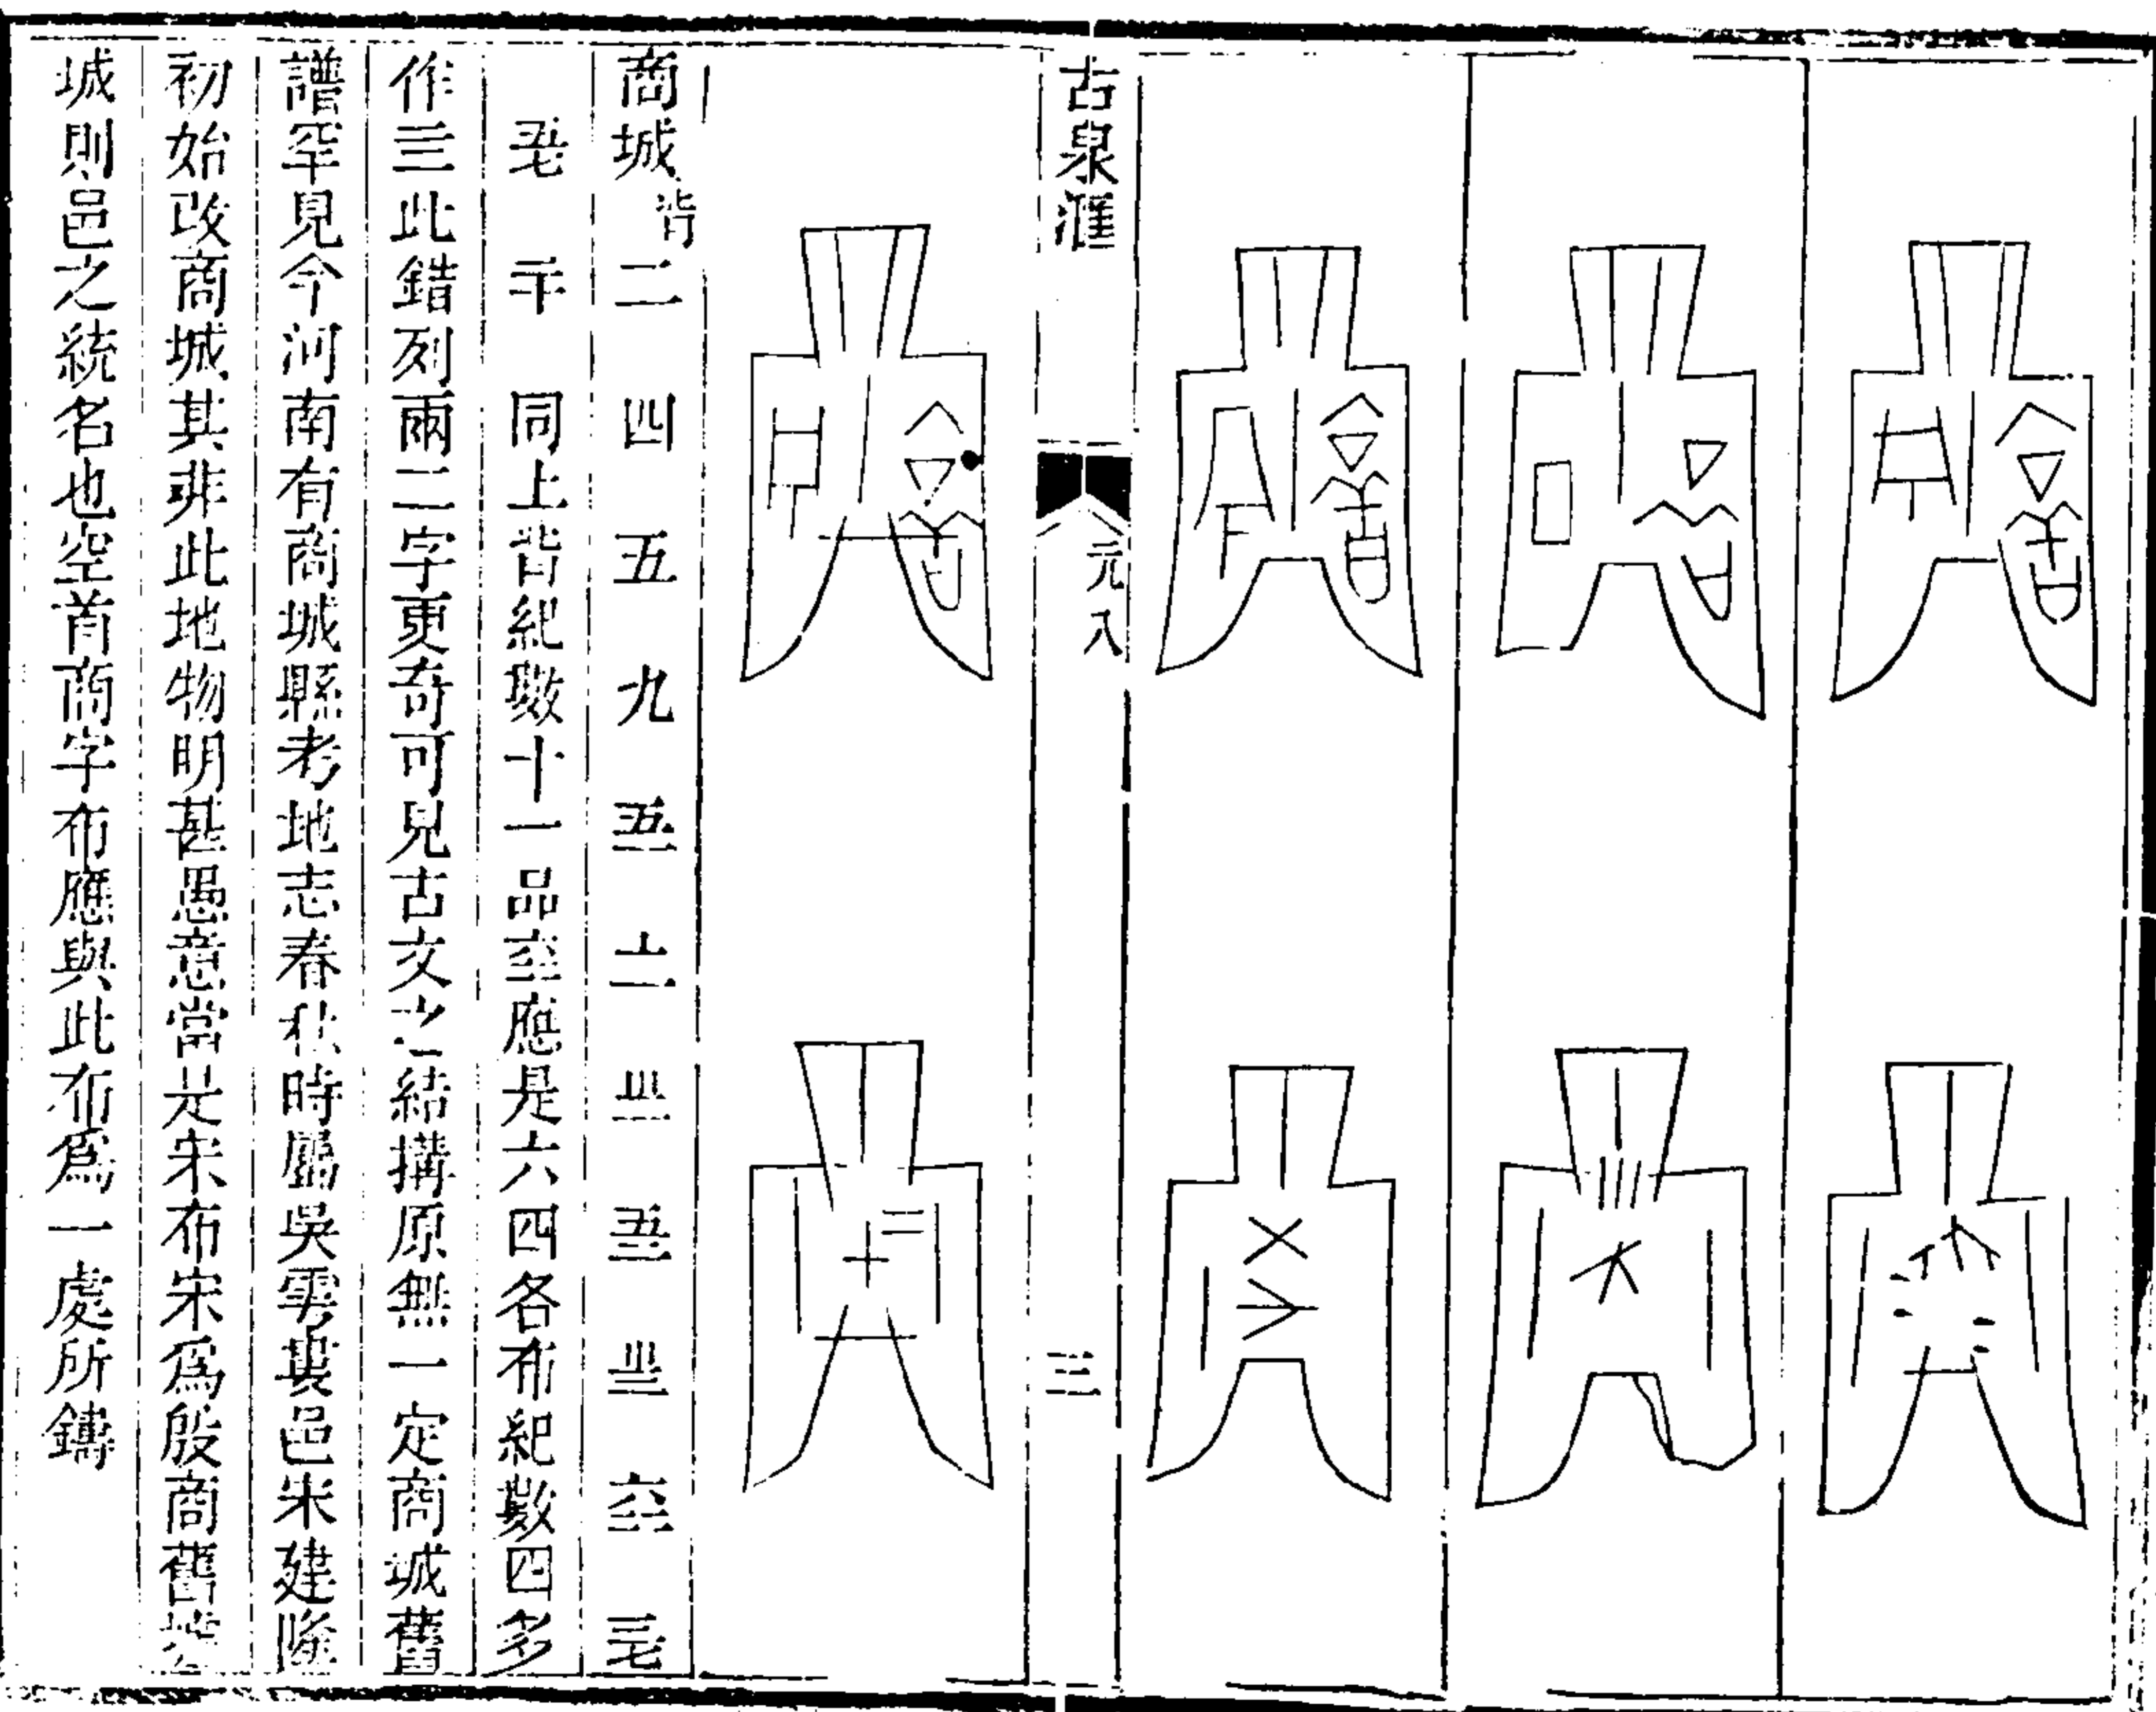 古泉滙
元八
三
商城背 二 四 五 九
同上背紀數十一品 應是六四各布紀數四多
作亖此錯列兩二字更奇可見古文之結搆原無一定商城舊
譜罕見今河南有商城縣考地志春秋時屬吳雩婁邑宋建隆
初始改商城其非此地物明甚愚意當是宋布宋爲殷商舊
城則邑之統名也空首商字布應與此布爲一處所鑄